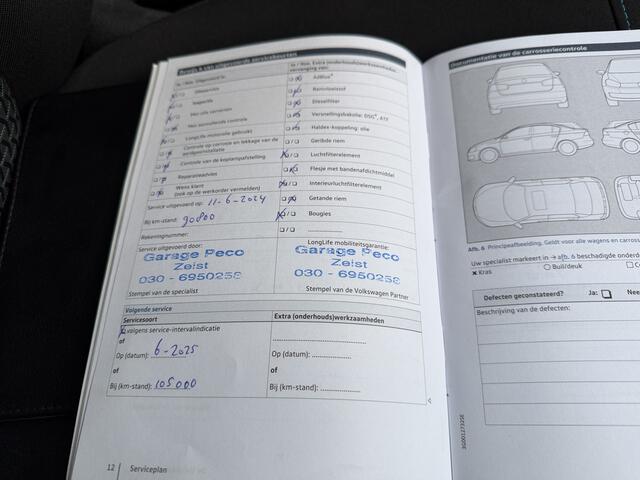 Bewijs 6 van uitgevoerde servicebeurten
Ja / Nee, Uitgevoerd is:
Ja / Nee, Extra (onderhouds)werkzaamheden,
vervanging van:
Olieservice
AdBlue®
Inspectie
Remvloeistof
Dieselfilter
Versnellingsbakolie: DSG®, ATF
LongLife motorolie gebruikt
Haldex-koppeling: olie
Controle op corrosie en lekkage van de
Geribde riem
Controle van de koplampafstelling
Luchtfilterelement
Reparatieadvies
Flesje met bandenafdichtmiddel
Wens klant
(ook op de werkorder vermelden)
Interieurluchtfilterelement
Service uitgevoerd op: 11-6-2024
Getande riem
Bij km-stand: 90800
Bougies
Rekeningnummer:
Service uitgevoerd door:
LongLife mobiliteitsgarantie:
Garage Peco
Zeist
030 - 6950258
Garage Peco
Zeist
030 - 6950258
Stempel van de specialist
Stempel van de Volkswagen Partner
Volgende service
Servicesoort
Extra (onderhouds)werkzaamheden
volgens service-intervalindicatie
of
Op (datum): 6-2025
Op (datum):
of
of
Bij (km-stand): 105000
Bij (km-stand):
12 Serviceplan
Documentatie van de carrosseriecontrole
Afb. 6 Principeafbeelding. Geldt voor alle wagens en
Uw specialist markeert in → afb. 6 beschadigde
x Kras
Buil/deuk
Defecten geconstateerd?
Ja:
Nee
Beschrijving van de defecten: